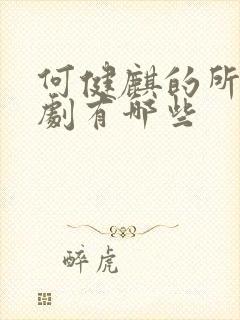 何健麒的所
劇有哪些
醉虎